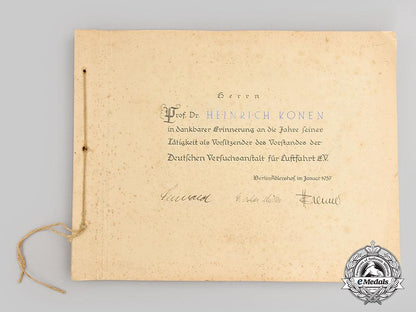 Herrn
Prof. Dr. HEINRICH KONEN
in dankbarer Erinnerung an die Jahre seiner
Tätigkeit als Vorsitzender des Vorstandes der
Deutschen Versuchsanstalt für Luftfahrt E.V.
Berlin-Adlershof, im Januar 1937
eMedals